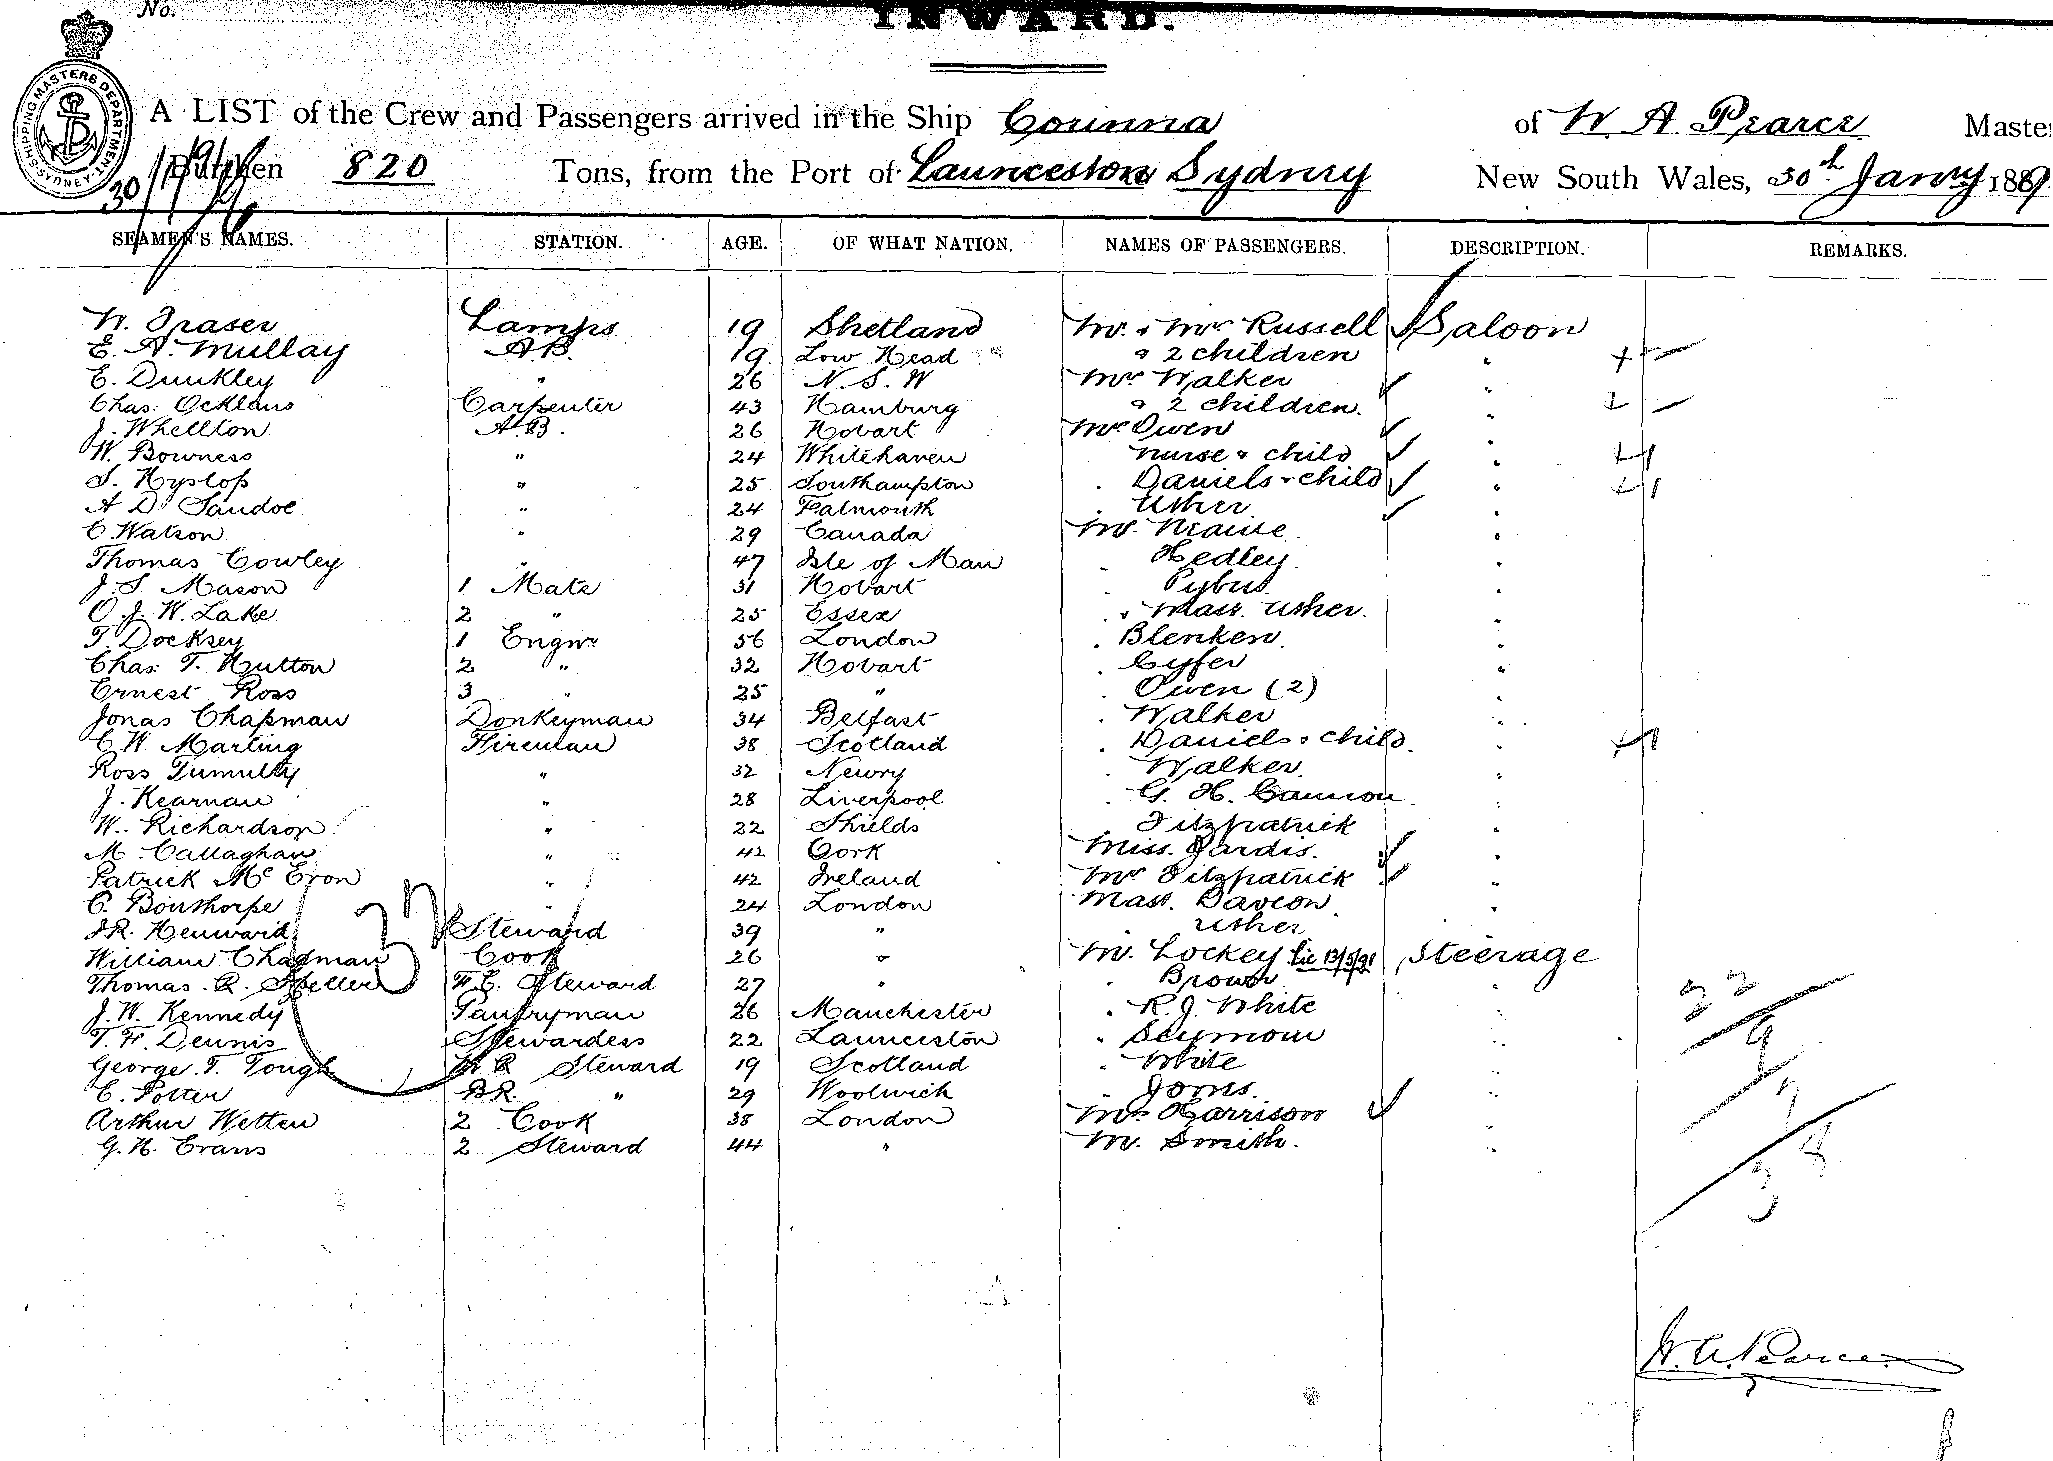 No.
INWARD.
SHIPPING MASTERS DEPARTMENT SYDNEY
A LIST of the Crew and Passengers arrived in the Ship Corinna of W A Pearce Master
Burthen 820 Tons, from the Port of Launceston Sydney New South Wales, 30th Janry 189
SEAMEN'S NAMES. STATION. AGE. OF WHAT NATION. NAMES OF PASSENGERS. DESCRIPTION. REMARKS.
W. Fraser Lamps 19 Shetland Mr. & Mrs Russell Saloon
E. A. Mullay A.B. 19 Low Head & 2 children "
E. Dunkley " 26 N. S. W Mrs Walker "
Chas. Ocklans Carpenter 43 Hamburg & 2 children "
J. Whellton A.B. 26 Hobart Mrs Owen "
W. Bowness " 24 Whitehaven nurse & child "
S. Hyslop " 25 Southampton " Daniels & child "
A D. Sandoe " 24 Falmouth " Usher "
C Watson " 29 Canada Mr. Krause "
Thomas Cowley " 47 Isle of Man " Hedley "
J. S. Mason 1 Mate 31 Hobart " Pybus "
O. J. W. Lake 2 " 25 Essex " Mast. Usher "
T. Docksey 1 Engnr 56 London " Blenken "
Chas. T. Hutton 2 " 32 Hobart " Cyfer "
Ernest Ross 3 " 25 " " Owen (2) "
Jonas Chapman Donkeyman 34 Belfast " Walker "
C. W. Marling Fireman 38 Scotland " Daniels & child "
Ross Tumulty " 32 Newry " Walker "
J. Kearnan " 28 Liverpool " G. H. Cannon "
W. Richardson " 22 Shields " Fitzpatrick "
M. Callaghan " 42 Cork Miss. Jardis. "
Patrick Mc Eron " 42 Ireland Mrs Fitzpatrick "
C. Bonthorpe " 24 London Mast. Davion "
J.R. Henward Steward 39 " " Usher
William Chapman Cook 26 " Mr. Lockey Steerage
Thomas. R. Speller F.C. Steward 27 " " Brown "
J. W. Kennedy Pantryman 26 Manchester " R. J. White "
T. F. Dennis Stewardess 22 Launceston " Seymour "
George. T. Tough Steward 19 Scotland " White "
C. Potter B.R. " 29 Woolwich " Jones. "
Arthur Wetten 2 Cook 38 London Mrs Harrison "
G. H. Evans 2 Steward 44 " Mr. Smith. "
W. A. Pearce